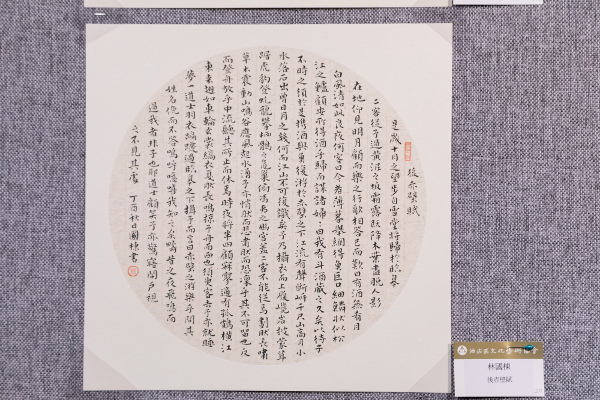 後赤壁賦
是歲十月之望步自雪堂將歸於臨皋
二客從予過黃泥之坂霜露既降木葉盡脫人影
在地仰見明月顧而樂之行歌相答已而歎曰有酒無肴月
白風清如此良夜何客曰今者薄暮舉網得魚巨口細鱗狀似松
江之鱸顧安所得酒乎歸而謀諸婦婦曰我有斗酒藏之久矣以待子
不時之須於是攜酒與魚復游於赤壁之下江流有聲斷岸千尺山高月小
水落石出曾日月之幾何而江山不可復識矣予乃攝衣而上履巉岩披蒙茸
踞虎豹登虬龍攀栖鶻之危巢俯馮夷之幽宮蓋二客不能從焉劃然長嘯
草木震動山鳴谷應風起水涌予亦悄然而悲肅然而恐凜乎其不可留也反
而登舟放乎中流聽其所止而休焉時夜將半四顧寂寥適有孤鶴橫江
東來翅如車輪玄裳縞衣戛然長鳴掠予舟而西也須臾客去予亦就睡
夢一道士羽衣蹁躚過臨皋之下揖予而言曰赤壁之游樂乎問其
姓名俛而不答嗚呼噫嘻我知之矣疇昔之夜飛鳴而
過我者非子也耶道士顧笑予亦驚寤開戶視
之不見其處 丁酉秋日國棟書
文化藝術協會
林國棟
後赤壁賦